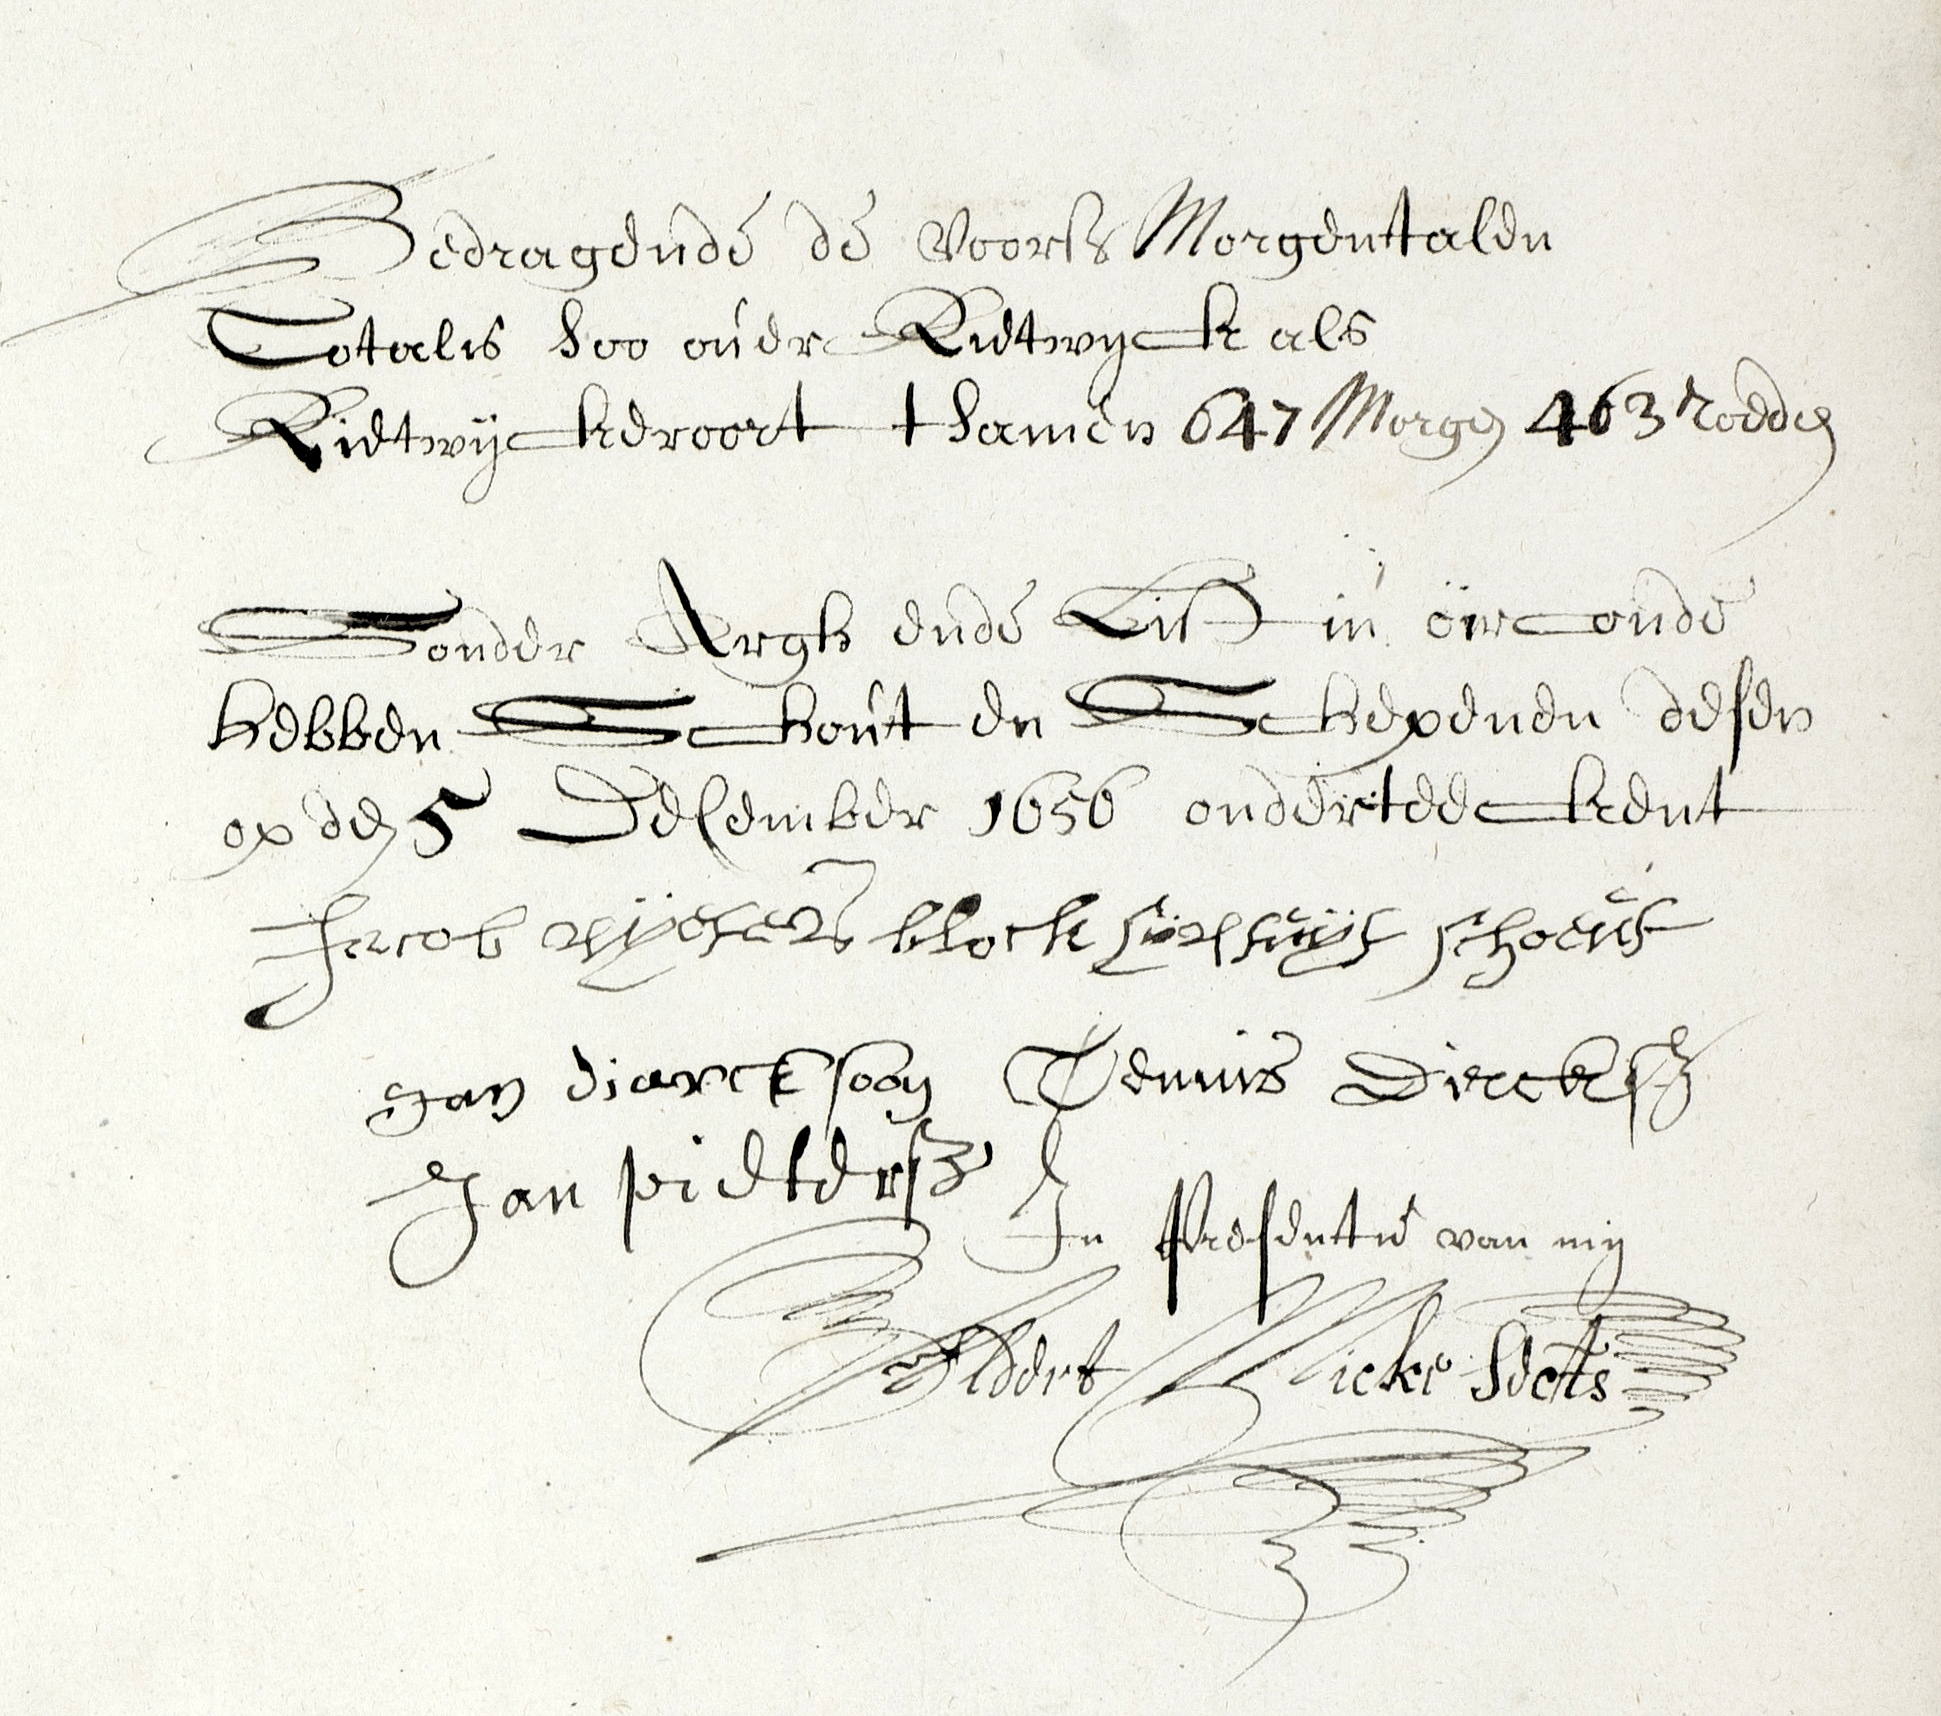 Bedragende de voors Morgentalen
Totalis soo over Rietwyck als
Rietwyckeroort tsamen 647 Morgen 463 roeden
Sonder Argh ende List in oirconde
hebben Schout en Schepenen desen
op den 5 Desember 1656 onderteeckent
Jacob block schoens
Jan diarcksoon Tennis Dircksz
Jan pieltersz In Presentie van mij
Aldert Micke Secrts